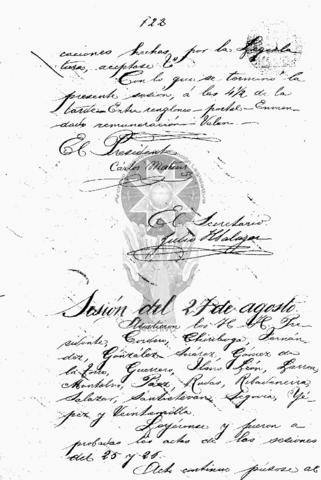 128
caciones hechas por la Legisla
tura, aceptase
Con lo que se terminó la
presente sesión, á las 4½ de la
tarde. Entre renglones - portal - Enmen
dado remuneración - Valen.
El Presidente
Carlos Mateus
El Secretario
Julio H. Salazar
Sesión del 27 de agosto
Asistieron los H. H. Pre
sidente, Cordero, Chiriboga, Fernán
dez, González Suárez, Gómez de
la Torre, Guerrero, León, Larrea
Montalvo, Páez, Rivadeneira
Salazar, Santistevan, Segovia, Yé
pez y Veintemilla.
Leyéronse y fueron a
probadas las actas de las sesiones
del 25 y 26.
Acto continuo púsose al
ARCHIVO